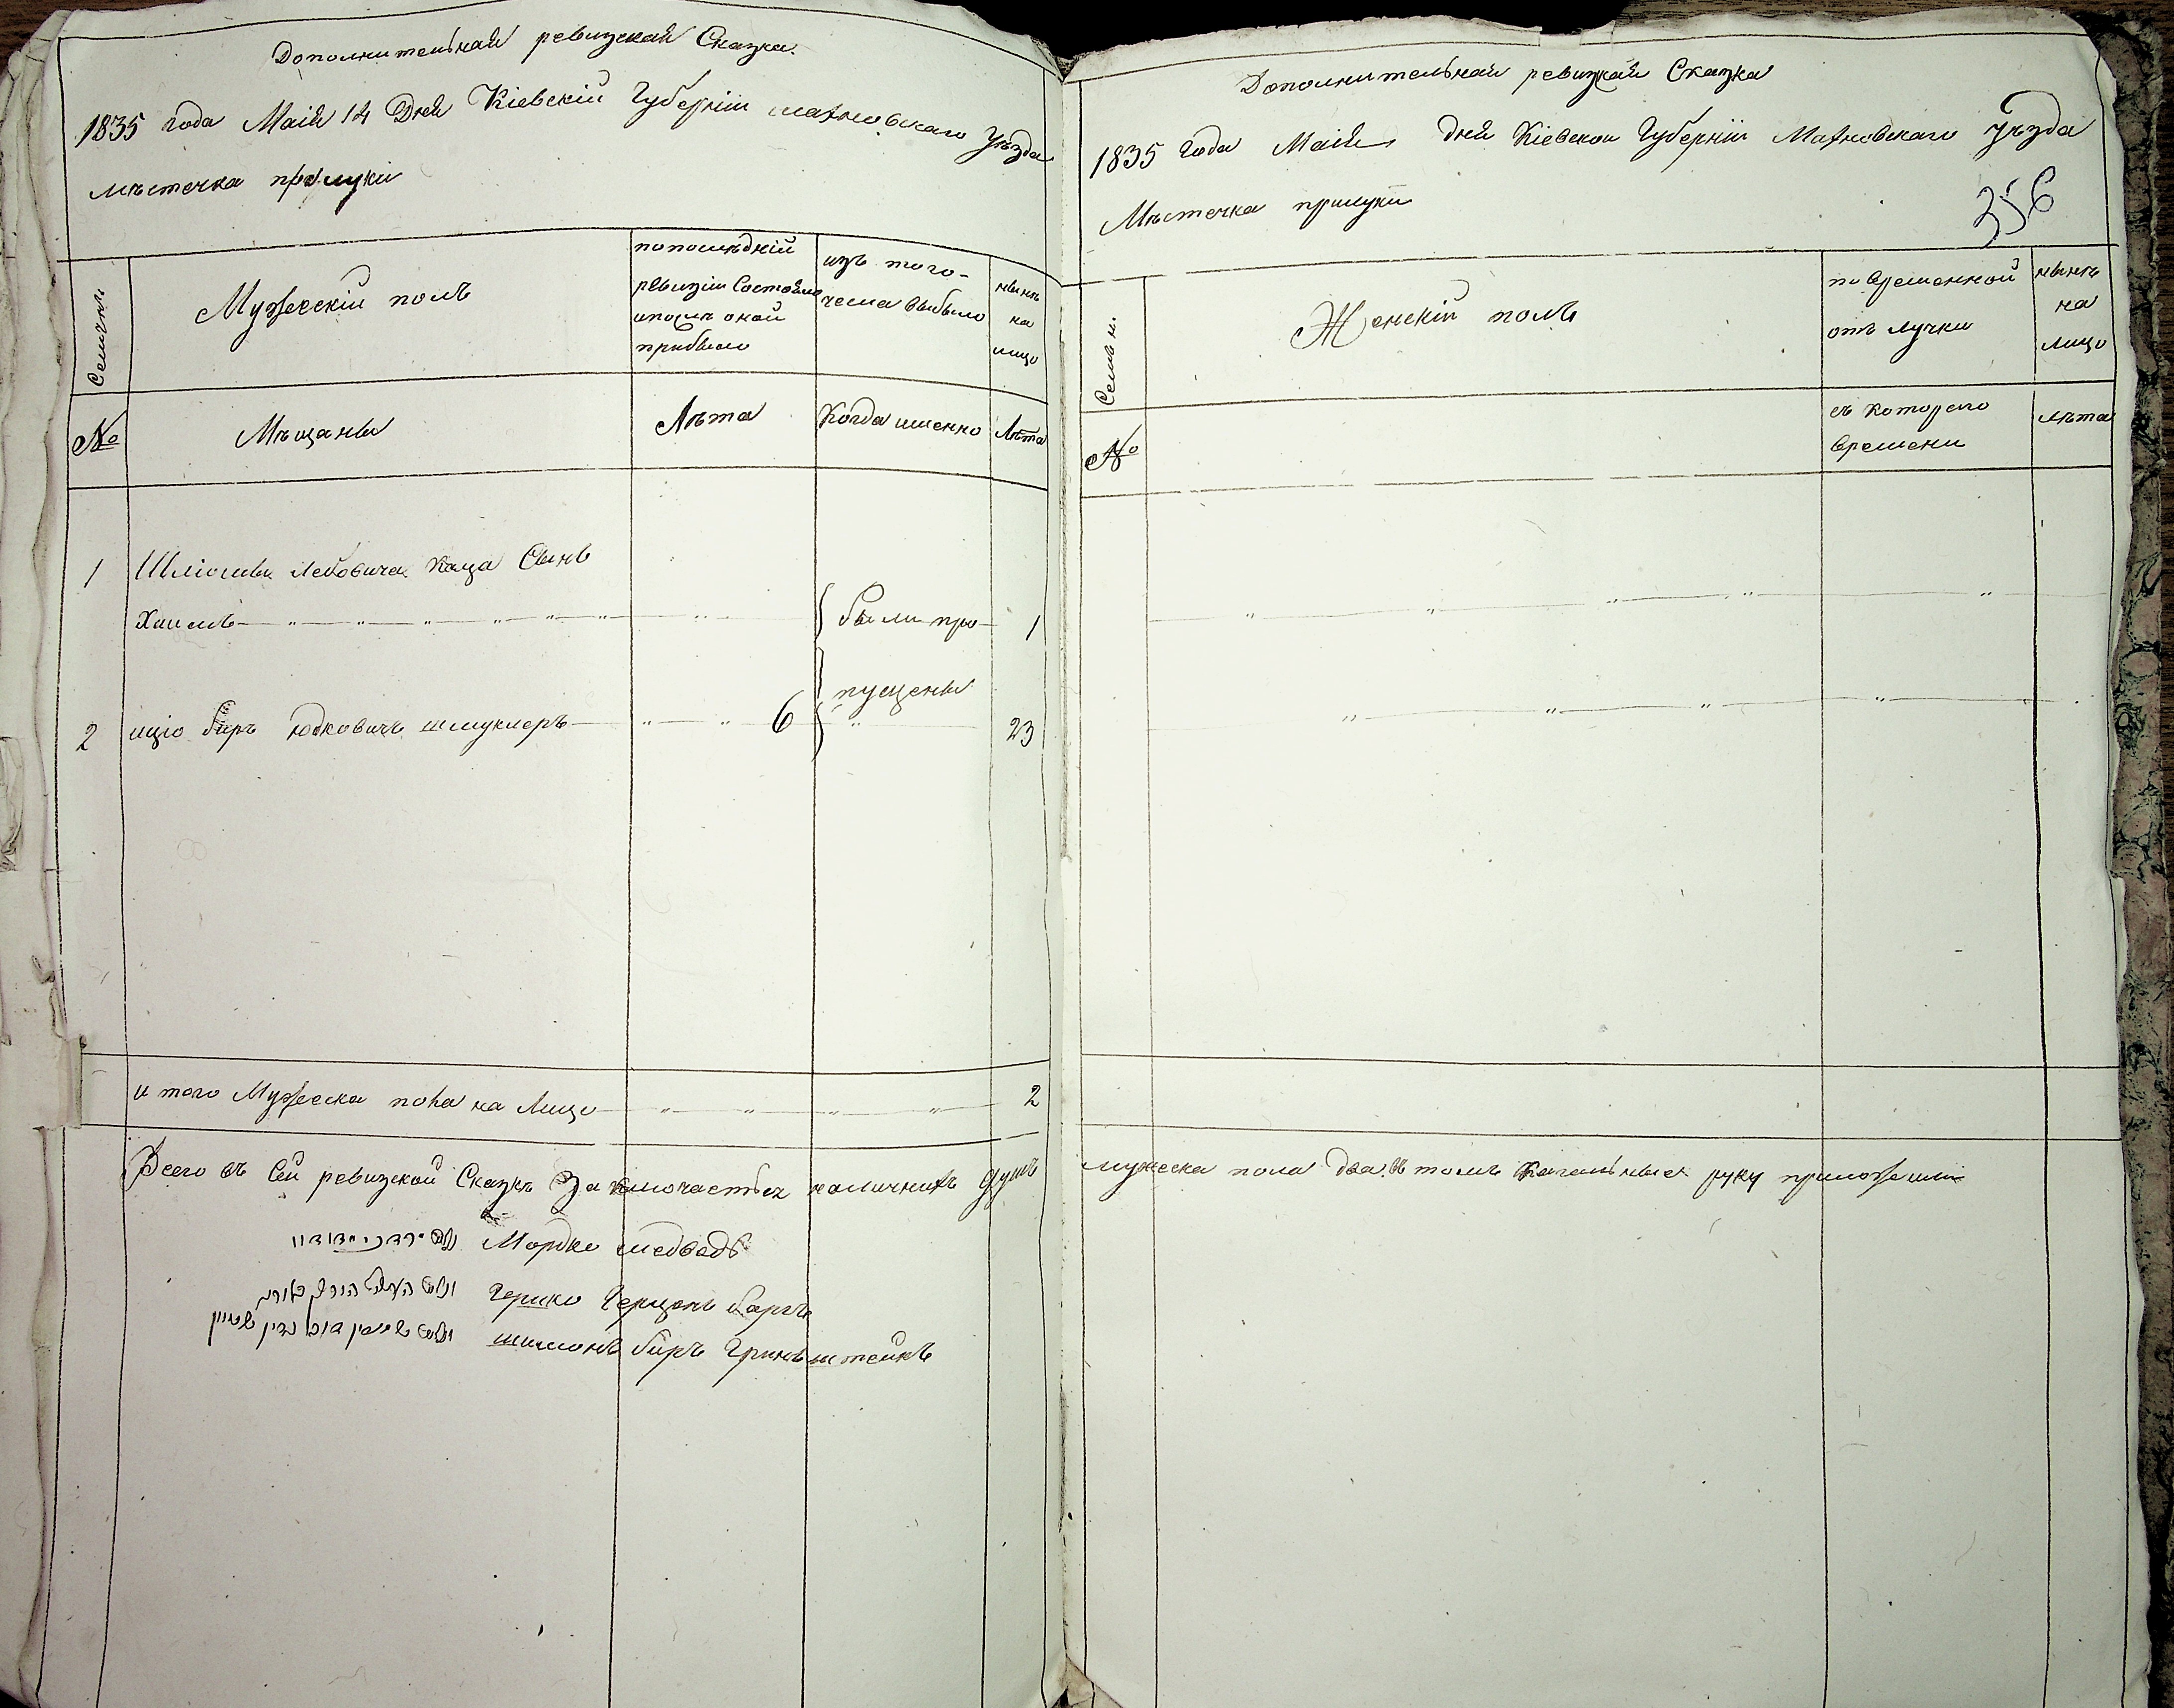 Дополнительная ревизская Сказка.
1835 года Маія 14 Дня Кіевскій Губерніи махновскаго Уѣзда
мѣстечка прилуки
Семьи
Мужескій полъ
по последній
ревизіи Состояло
и после оной
прибыло
изъ того-
числа выбыло
нынѣ
на
лицо
№
Мѣщаны
Лѣта
Когда именно
Лѣта
1
Шліомы Лейбовича Каца Сынъ
Хаимъ
были про-
1
пущены
2
ицко беръ Юдковичъ шмуклеръ
6
23
и того Мужеска пола на Лицо
2
Всего въ Сей ревизской Сказкѣ Заключается наличныхъ душъ
Мордко медведь
Гершко Герценъ бергъ
шимонъ беръ Гринъштейнъ
Дополнительная ревизкая Сказка
1835 Года Маія Дня Кіевской Губерніи Махновскаго Уѣзда
356
Мѣстечка прилуки
Семьи.
Женскій полъ
во временной
отлучки
нынѣ
на
лицо
№
съ которого
времени
лѣта
мужеска пола два въ томъ Кагальные руку приложили